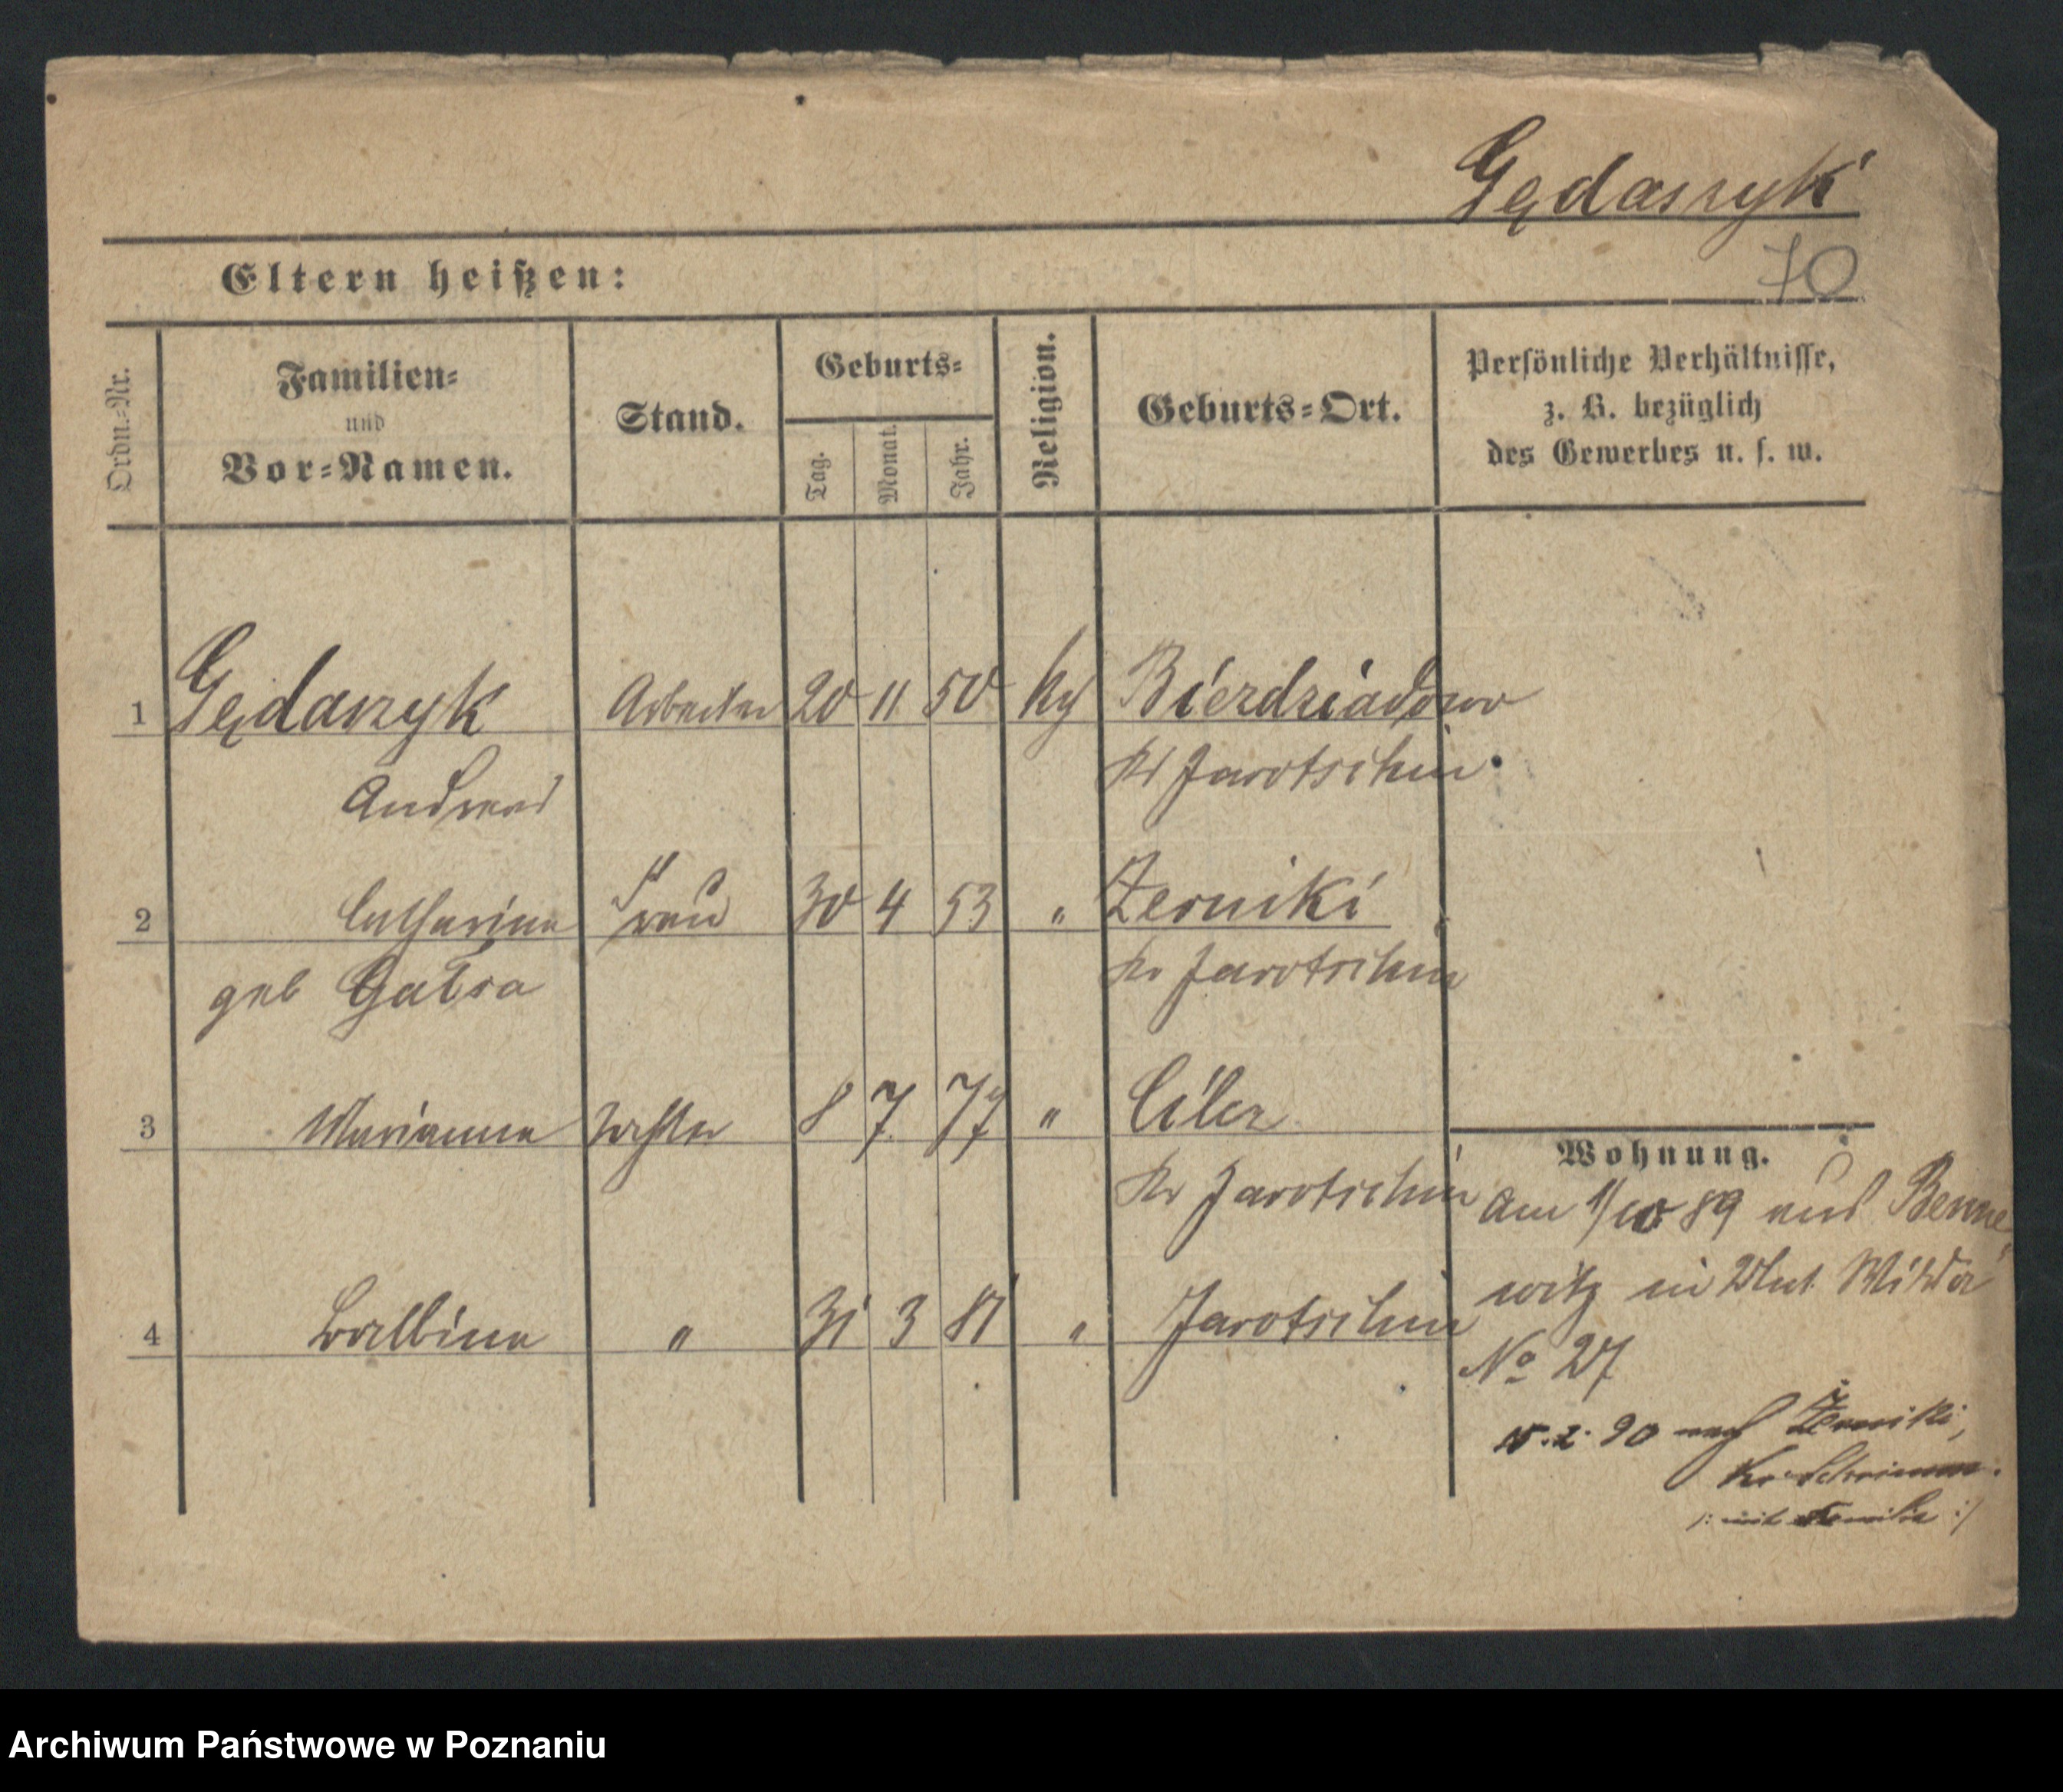 Gędaszyk
70
Eltern heißen:
Ordn.-Nr.
Familien-
und
Vor-Namen.
Stand.
Geburts-
Tag.
Monat.
Jahr.
Religion.
Geburts-Ort.
Persönliche Verhältnisse,
z. B. bezüglich
des Gewerbes u. s. w.
1 Gędaszyk Arbeiter 20 11 50 kg
Andreas Kr Jarotschin
2 Catharina Frau 30 4 53 " Zerniki
geb Kr Jarotschin
3 Marianna Tochter 8 7 77 "
Kr Jarotschin
4 Balbina " 31 3 81 " Jarotschin
Wohnung.
Am 1/10 89 aus Benne
witz in Wilda
No 27
15.2.90 nach Żerniki,
Kr. Schrimm.
/: mit Familie :/
Archiwum Państwowe w Poznaniu